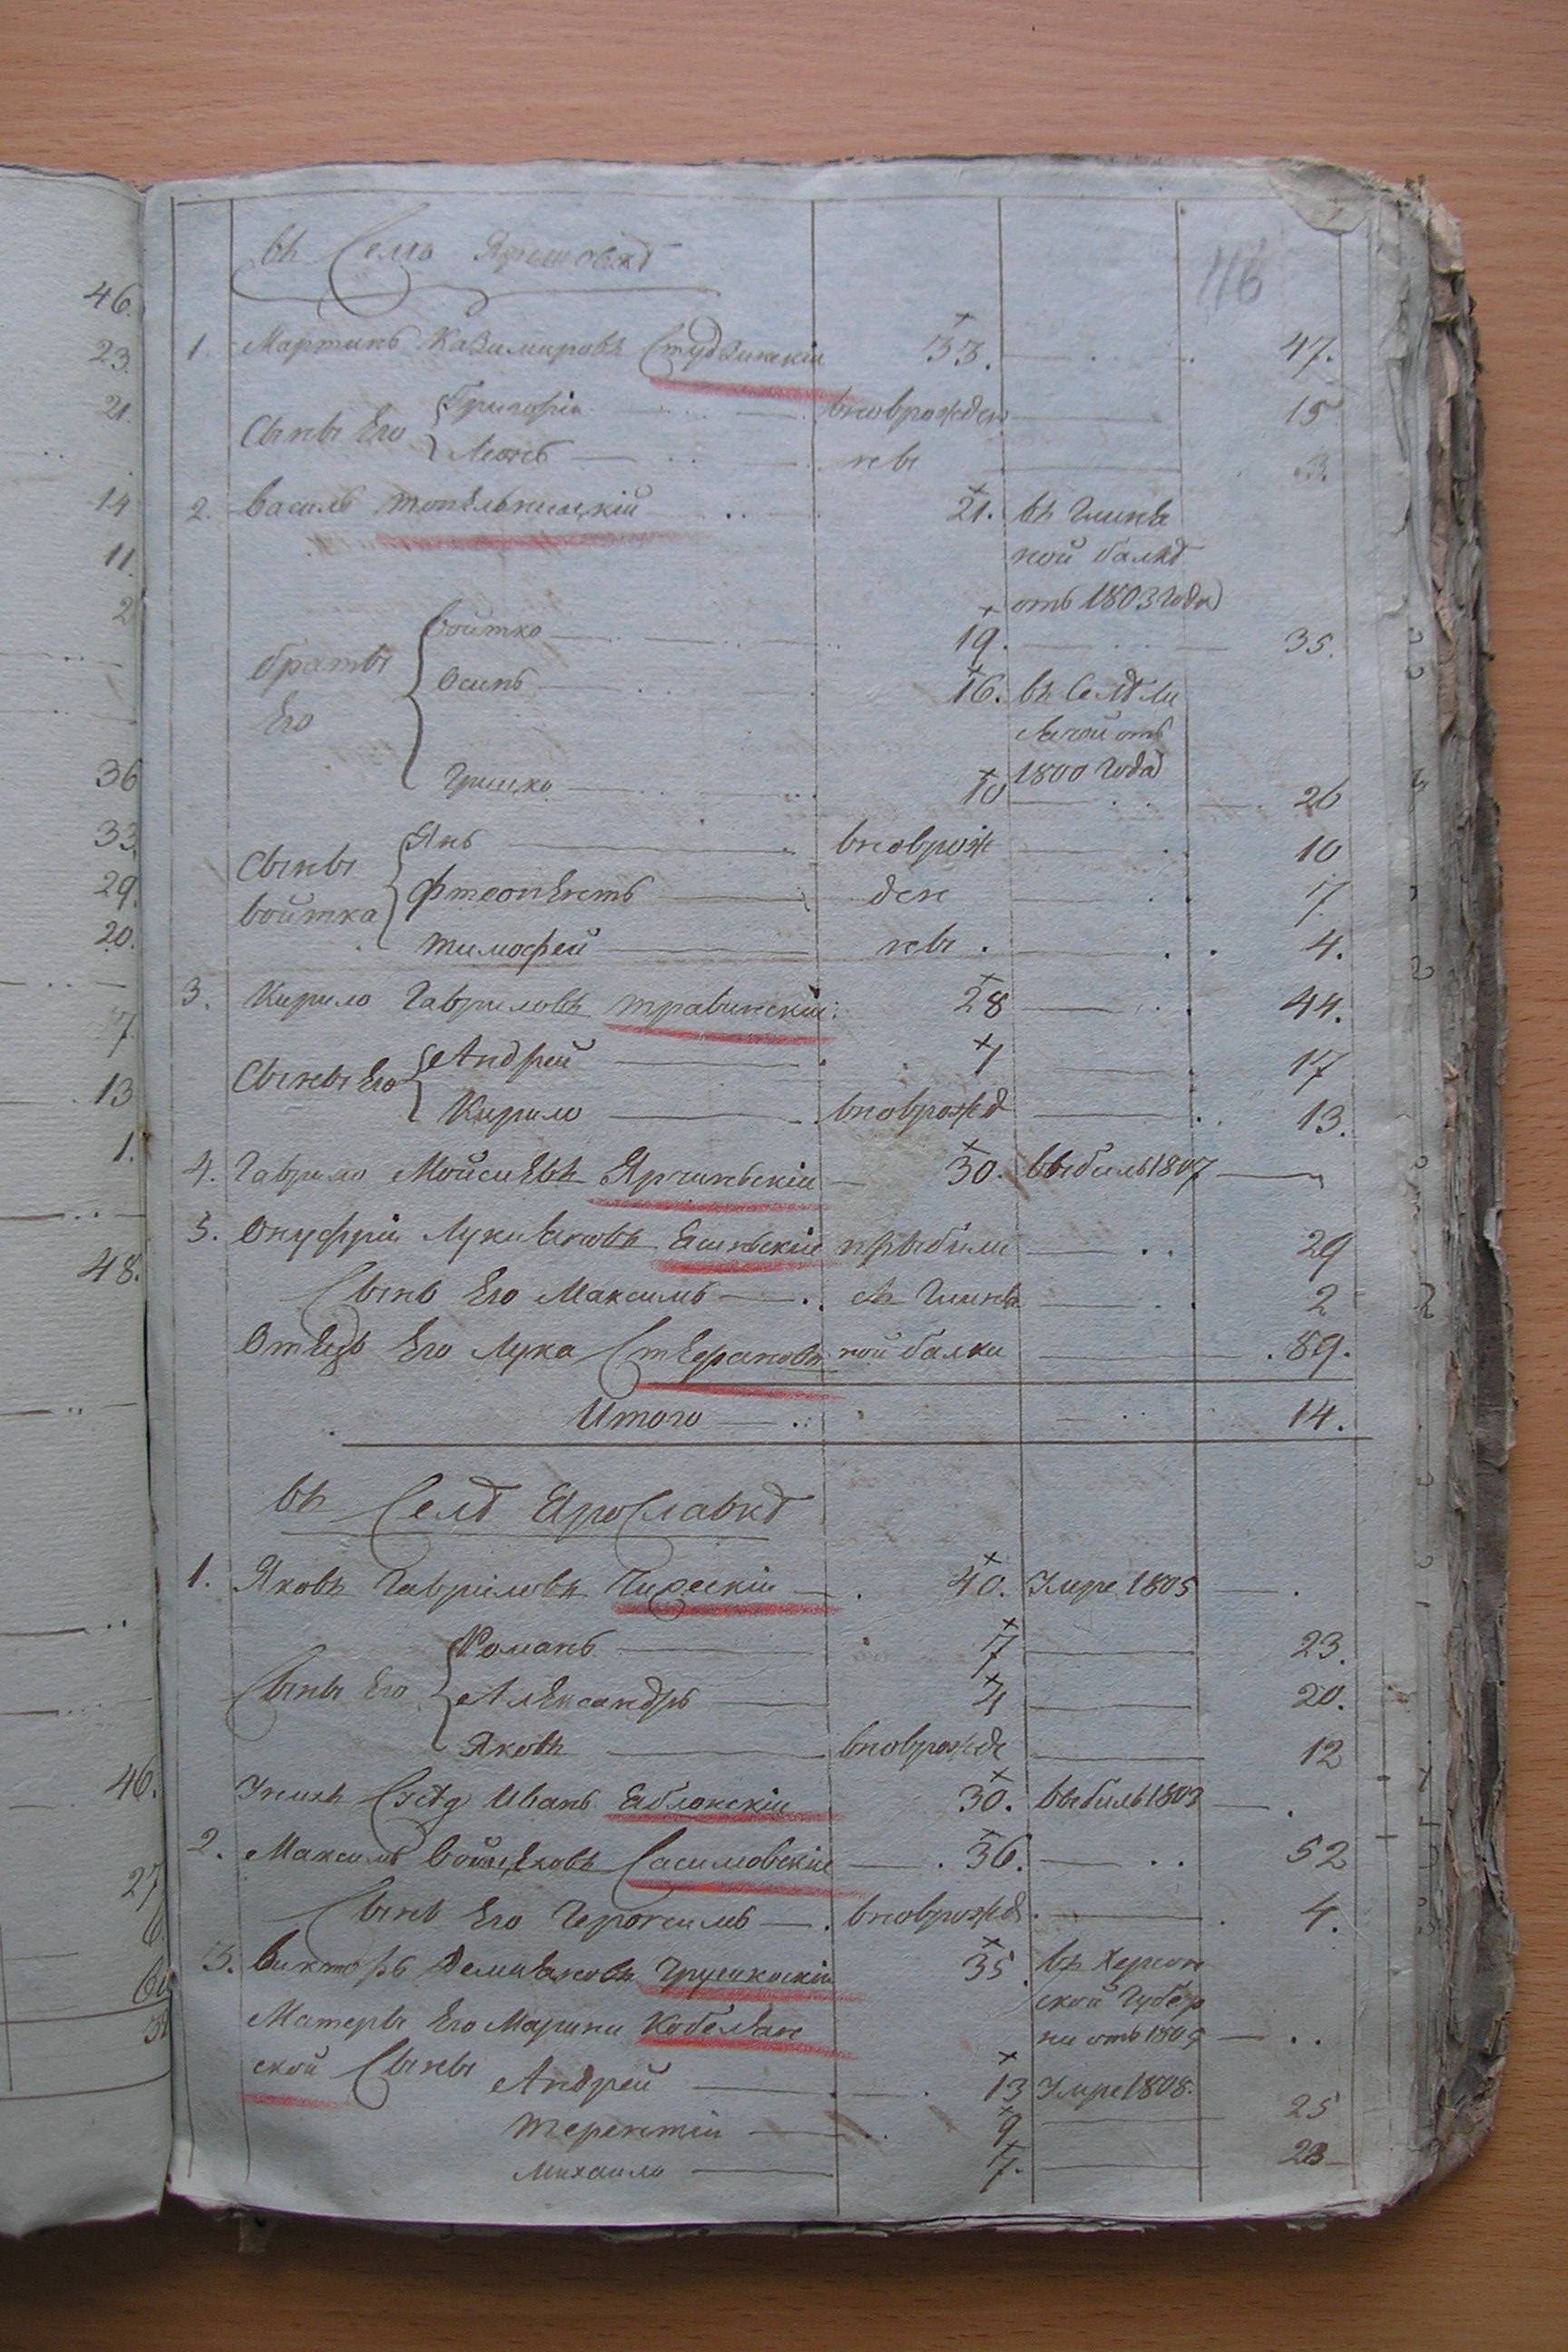 46.
23.
21.
14
11.
2
36
33.
29.
20.
7.
13
1.
48.
46.
27
6
116
въ Селѣ
1. Мартинъ Казимировъ Студзинскій 33. 47.
Сыны Его Григорій вновьрожден 15
Леонъ ны 3.
2. Василь Топельницкій 21. въ Глиня
ной балкѣ
отъ 1803 года
братья Его Войтко 19. 35.
Осипъ 16. въ Селѣ
отъ
1800 года
Гришко 10 26
Сыны Войтка Янъ вновьрож 10
ден 7.
Тимофей ны. 4.
3. Кирило Гавриловъ Травинскій 28 44.
Сыны Его Андрей 1 17
Кирило вновьрожд 13.
4. Гаврило Мойсиевъ Ярчиньскій 30. выбылъ 1807
5. Онуфрій Лукіяновъ Ясиньскій прыбыли 29
Сынъ Его Максимъ съ Глиня 2
Отецъ Его Лука Стефановъ ной балки 89.
Итого 14.
въ Селѣ Ярославкѣ
1. Яковъ Гавриловъ 40. Умре 1805
Сыны Его Романъ 7 23.
Александръ 4 20.
Яковъ вновьрожде 12
Унихъ Иванъ Яблонскій 30. выбылъ 1803
2. Максимъ Войцеховъ Сасимовскій 36. 52
Сынъ Его вновьрожд. 4.
3. Викторъ Демияновъ 35. въ Херсон
ской Губер
ни отъ 1805
Матеры Его Марини Кобелян
ской Сыны Андрей 13 Умре 1808.
Терентій 9 25
Михайло 7. 23